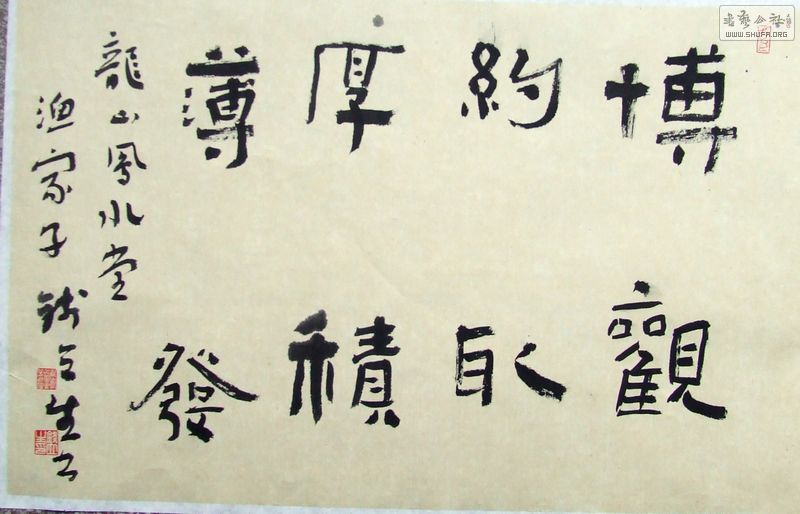 博觀
約取
厚積
薄發
龍山鳳水堂
漁家子錢立生书
书艺公社
WWW.SHUFA.ORG